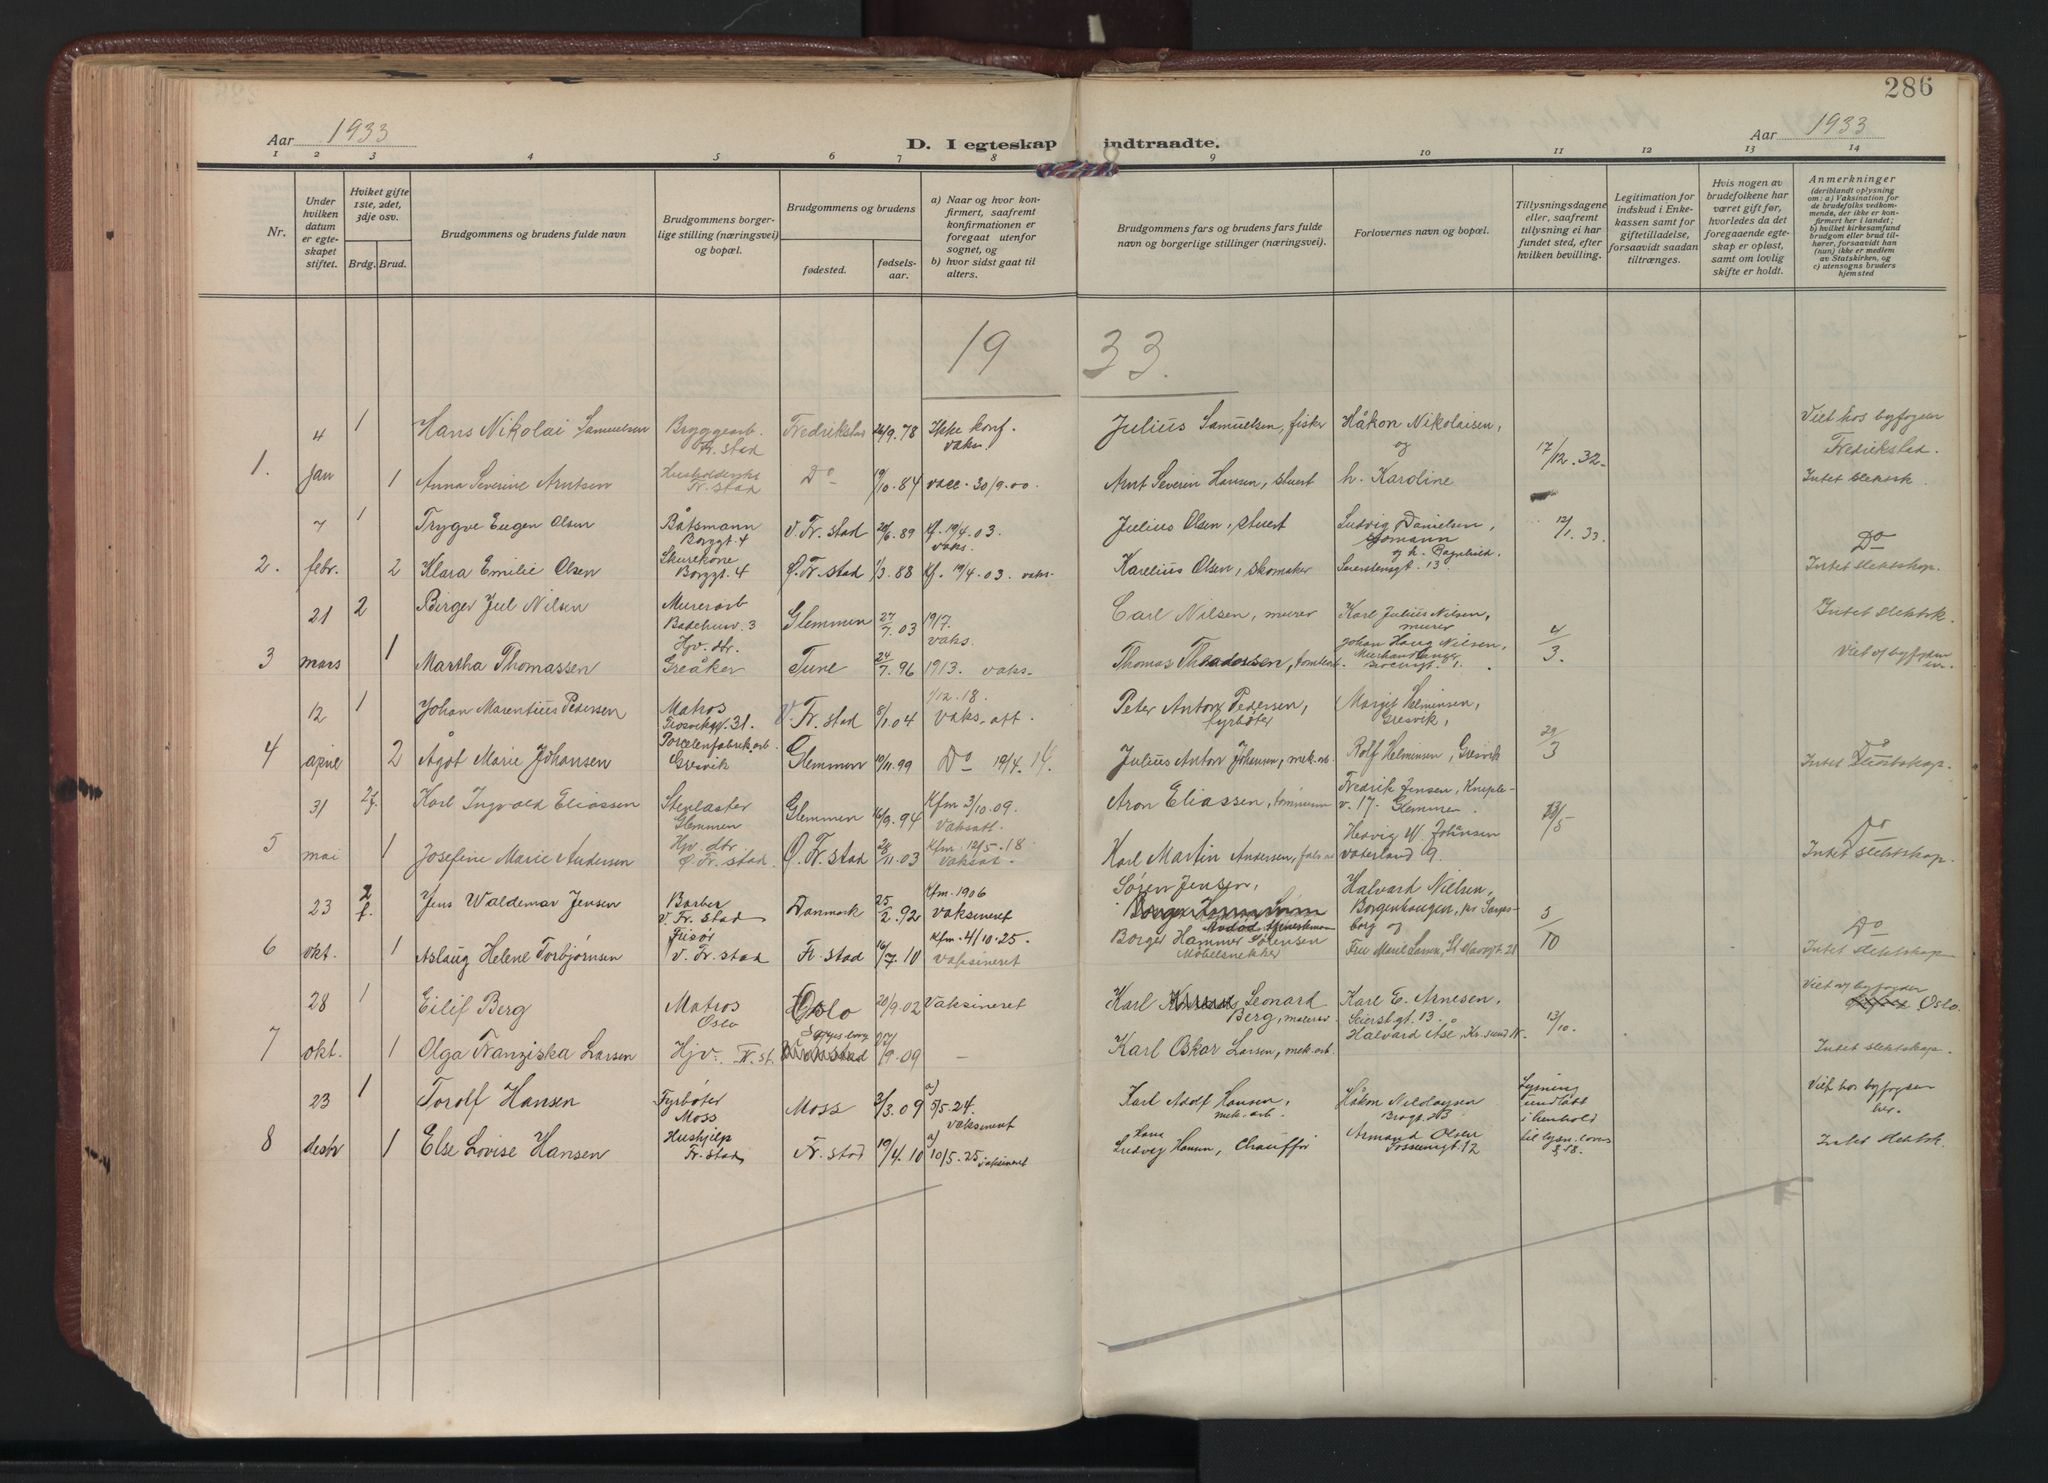 286
Aar 1933
D. I egteskap indtraadte.
Aar 1933
1 2 3 4 5 6 7 8 9 10 11 12 13 14
Nr.
Under hvilken datum er egteskapet stiftet.
Hviket gifte 1ste, 2det, 3dje osv.
Brdg. Brud.
Brudgommens og brudens fulde navn
Brudgommens borgerlige stilling (næringsvei) og bopæl.
Brudgommens og brudens
fødested.
fødselsaar.
a) Naar og hvor konfirmert, saafremt konfirmationen er foregaat utenfor sognet, og
b) hvor sidst gaat til alters.
Brudgommens fars og brudens fars fulde navn og borgerlige stillinger (næringsvei).
Forlovernes navn og bopæl.
Tillysningsdagene eller, saafremt tillysning ei har fundet sted, efter hvilken bevilling.
Legitimation for indskud i Enkekassen samt for giftetilladelse, forsaavidt saadan tiltrænges.
Hvis nogen av brudefolkene har været gift før, hvorledes da det foregaaende egteskap er opløst, samt om lovlig skifte er holdt.
Anmerkninger
(deriblandt oplysning om: a) Vaksination for de brudefolks vedkommende, der ikke er konfirmert her i landet; b) hvilket kirkesamfund brudgom eller brud tilhører, forsaavidt han (hun) ikke er medlem av Statskirken, og c) utensogns bruders hjemsted
19 33.
4 1 Hans Nikolai Samuelsen Bryggearb. Fr. stad Fredrikstad 26/9. 78 Ikke konf. vaks. Julius Samuelsen, fisker Håkon Nikolaisen, og 17/12. 32. Viet hos byfogen Fredrikstad.
1. jan 1 Anna Severine Arntsen Fr. stad Do 19/10. 84 vacc. 30/9.00. Arnt Severin Hansen, stuert h. Karoline Intet slektsk.
7 1 Trygve Eugen Olsen Båtsmann Borggt. 4 V. Fr. stad 20/6. 89 Kf. 19/4. 03. vaks. Julius Olsen, stuert Ludvig Danielsen, sjømann 12/1. 33. Do
2. febr. 2 Klara Emilie Olsen Skurekone Borggt. 4 Ø. Fr. stad 1/3. 88 Kf. 19/4. 03. vaks. Karelius Olsen, skomaker og h. Ragnhild. Seierstensgt. 13. Intet slektskap.
21 2 Birger Jul Nilsen Murerarb Badehusv. 3 Glemmen 27/7. 03 1917. vaks. Carl Nilsen, murer Karl Julius Nilsen, murer 4/3. Intet slektsk.
3 mars 1 Martha Thomassen Hj v. dtr. Greåker Tune 24/7. 96 1913. vaks. Thomas Theodorsen, Johan Haug Nilsen, Viet v/ byfogden
12 1 Johan Marentius Pedersen Matros Trosvikgt. 31. V. Fr. stad 8/1. 04 1/12. 18. vaks. att. Peter Anton Pedersen, fyrbøter Margit Helminsen, Gresvik, 29/3
4 april 2 Ågot Marie Johansen Porcelenfabrik arb. Gresvik Glemmen 10/11. 99 Do 19/4. 14. Julius Anton Johansen, mek. arb. Rolf Helminsen, Gresvik Do Intet slektskap.
31 2 f. Karl Ingvald Eliassen Glemmen Glemmen 16/9. 94 Kfm 3/10. 09. vaksatt. Aron Eliassen, tømmerm Fredrik Jensen, v. 17. Glemmen 13/5
5 mai 1 Josefine Marie Andersen Hj v. dtr Ø. Fr. stad Ø. Fr. stad 28/11. 03 Kfm. 12/5. 18 vaksat. Karl Martin Andersen, Hedvig W. Johnsen vaterland 9. Do Intet slektskap.
23 2 f. Jens Waldemar Jensen Barber V. Fr. stad Danmark 25/2. 92 Kfm. 1906 vaksineret Søren Jensen, Halvard Nielsen, Borgenhaugen, pr Sarpsborg og 5/10 Do
6 okt. 1 Aslaug Helene Torbjørnsen Frisør V. Fr. stad Fr. stad 16/7. 10 Kfm. 4/10. 25. vaksineret Borger Hammer Sørensen Møbelsnekker Fru Marie Larsen, Intet slektskap
28 1 Eilif Berg Matros Oslo Oslo 20/9. 02 Vaksineret Karl Leonard Berg, malerarb Karl E. Arnesen, Seierst. gt. 13. 13/10. Viet v/ byfogden Oslo.
7 okt. 1 Olga Franziska Larsen Hj v. Fr. st. Sarpsborg 9. 09 – Karl Oskar Larsen, mek. arb. Halvard Åse, Kr. sund N. Intet slektskap.
23 1 Torolf Hansen Fyrbøter Moss Moss 3/3. 09 a) 5/5. 24. vaksinert Karl Adolf Hansen, mek. arb. Håkon Nikolaysen Lysning undlått i henhold til lysn. lovens § 58. Viet hos byfogden her.
8 desbr 1 Else Lovise Hansen Hushjelp Fr. stad Fr. stad 19/4. 10 a) 10/5. 25. vaksineret Ludvig Hansen, Chauffør Armand Olsen Fossumgt. 12 Intet slektsk.